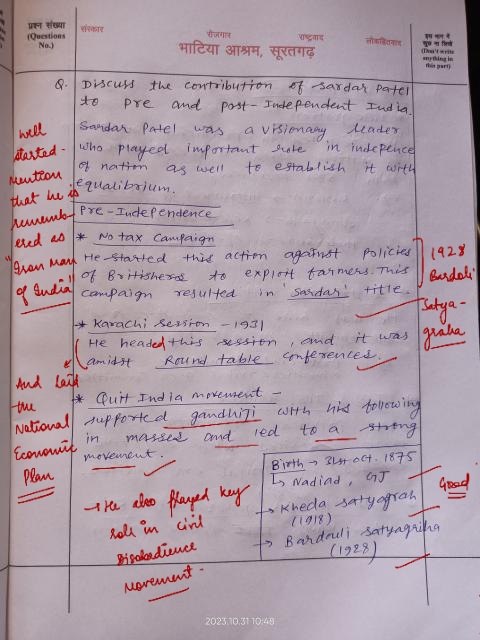 प्रश्न संख्या
(Questions
No.)
संस्कार
रोजगार
राष्ट्रवाद
लोकहितवाद
भाटिया आश्रम, सूरतगढ़
इस भाग में
कुछ ना लिखें
(Don't write
anything in
this part)
Q. Discuss the contribution of Sardar Patel
to Pre and Post-Independent India.
Sardar Patel was a visionary leader
who played important role in indepence
of nation as well to establish it with
equalibrium.
Well
started-
Mention
that he is
rememb
ered as
"Iron Man
of India"
Pre-Independence
* No tax Campaign
He started this action against policies
of Britishers to exploit farmers. This
campaign resulted in 'Sardar' title.
1928
Bardoli
Satya-
graha
* Karachi Session - 1931
He headed this session, and it was
amidst Round table conferences.
And laid
the
National
Economic
Plan
* Quit India movement -
supported gandhiji with his following
in masses and led to a strong
movement.
Birth → 31st Oct. 1875
↳ Nadiad, GJ
→ Kheda Satyagrah
(1918)
→ Bardauli Satyagriha
(1928)
Good
→ He also played key
role in civil
Disobedience
Movement-
2023.10.31 10:48